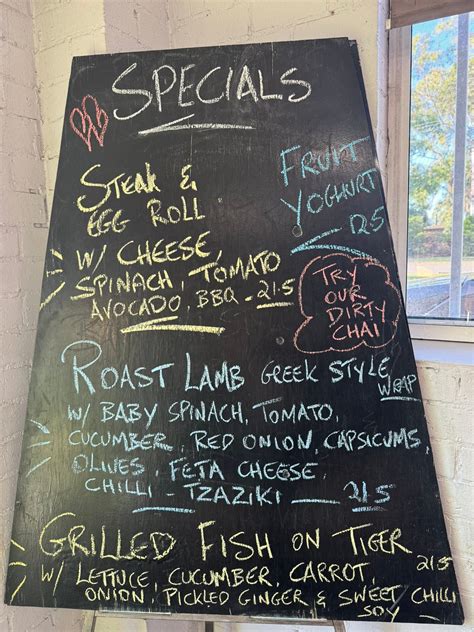 SPECIALS
STEAK &
EGG ROLL
W/ CHEESE
SPINACH, TOMATO
AVOCADO, BBQ - 21.5
FRUIT
YOGHURT
12.5
TRY
OUR
DIRTY
CHAI
ROAST LAMB GREEK STYLE
WRAP
W/ BABY SPINACH, TOMATO,
CUCUMBER, RED ONION, CAPSICUMS
OLIVES, FETA CHEESE
CHILLI - TZAZIKI 21.5
GRILLED FISH ON TIGER
W/ LETTUCE, CUCUMBER, CARROT, 21.5
ONION, PICKLED GINGER & SWEET CHILLI
SOY